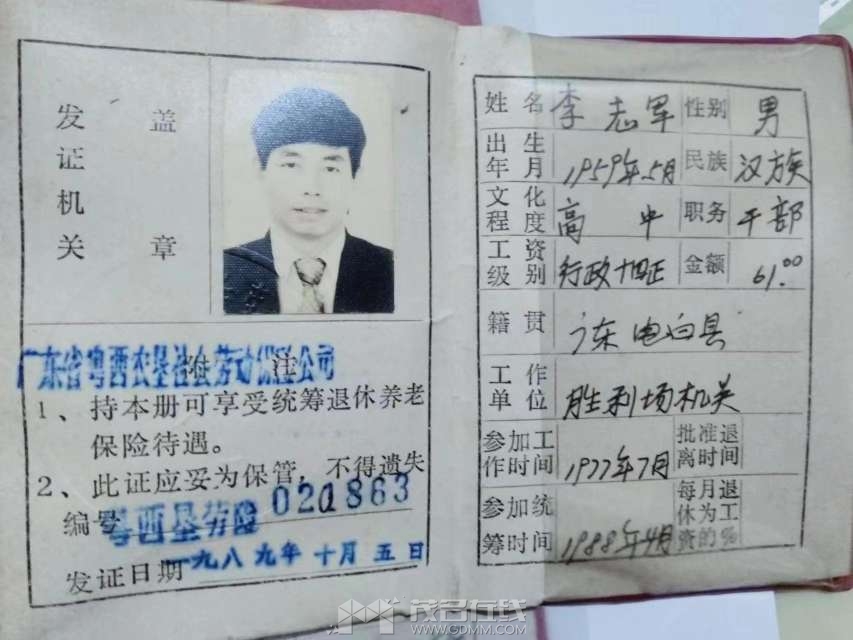 发 盖
证
机
关 章
广东省粤西农垦社会劳动保险公司
附 注
1、持本册可享受统筹退休养老
保险待遇。
2、此证应妥为保管，不得遗失
编号 粤西垦劳险 021863
发证日期 一九八九年十月五日
姓名 李志军 性别 男
出生年月 1959年5月 民族 汉族
文化程度 高中 职务 干部
工资级别 行政十四正 金额 61.00
籍贯 广东电白县
工作单位 胜利场机关
参加工作时间 1977年7月 批准退离时间
参加统筹时间 1988年4月 每月退休为工资的%
茂名在线
WWW.GDMM.COM